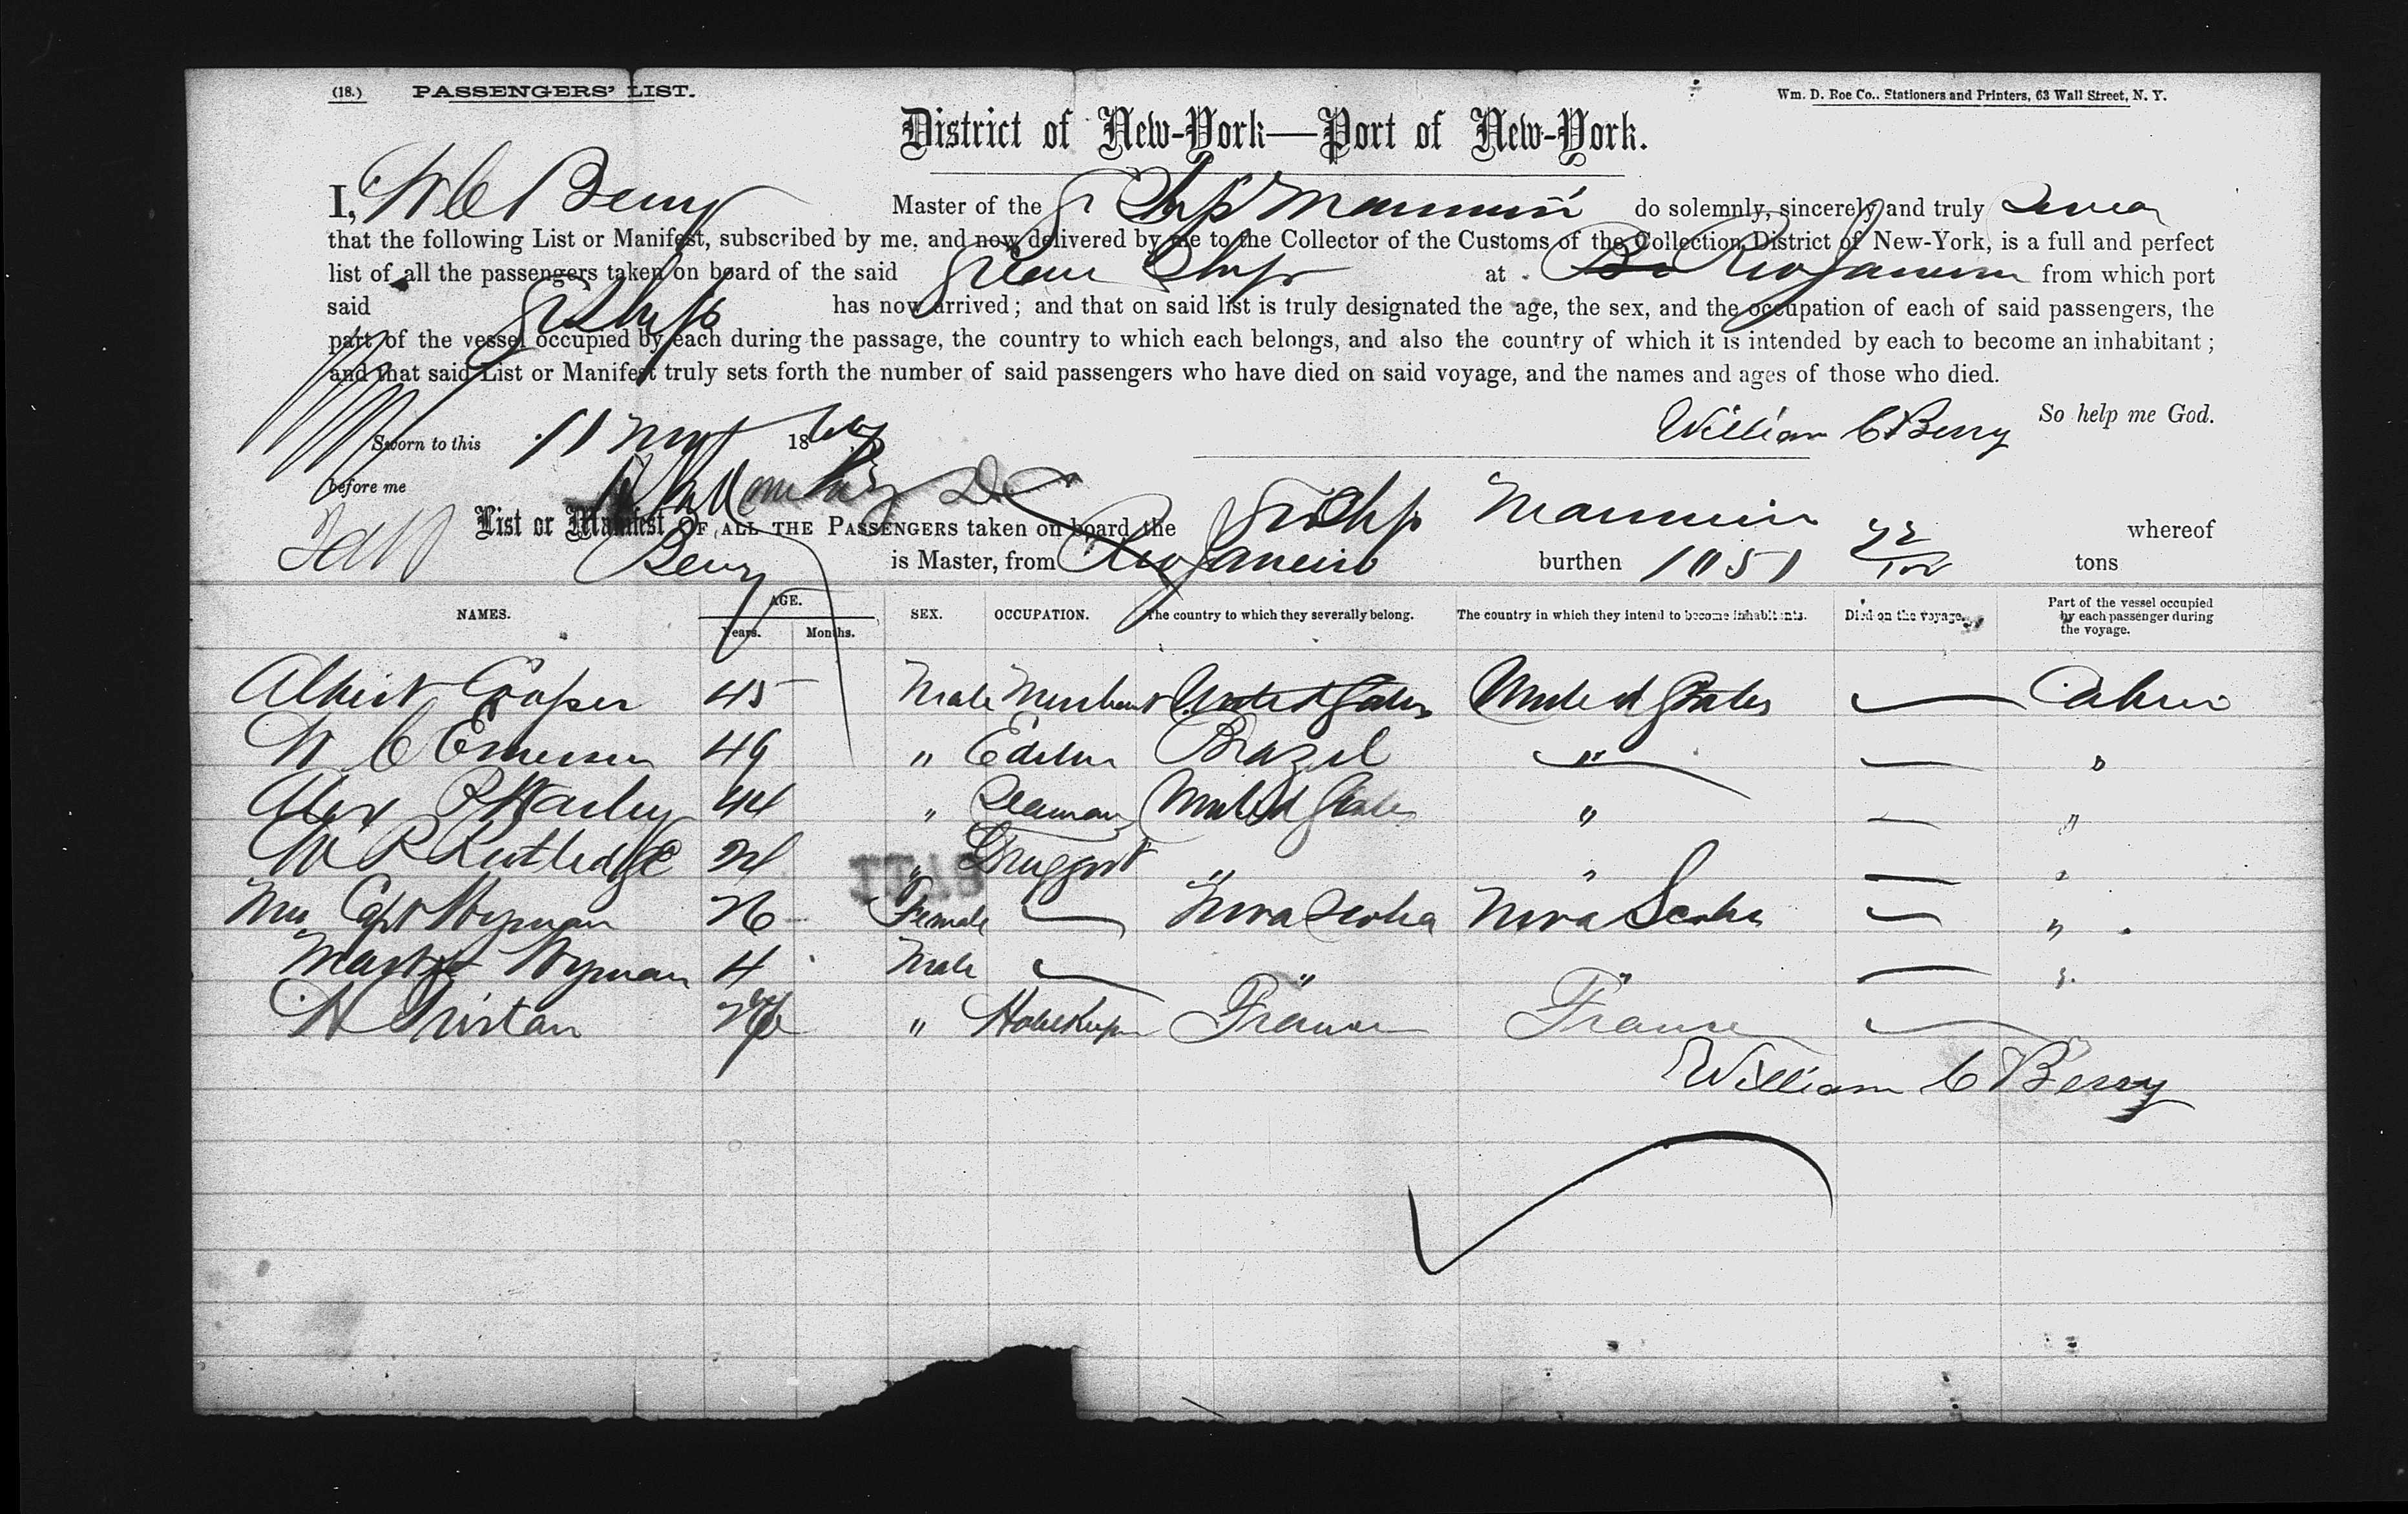 (18.) PASSENGERS' LIST. Wm. D. Roe Co., Stationers and Printers, 63 Wall Street, N. Y.
District of New-York—Port of New-York.
I, W C Berry Master of the Ship do solemnly, sincerely and truly swear
that the following List or Manifest, subscribed by me, and now delivered by me to the Collector of the Customs of the Collection District of New-York, is a full and perfect
list of all the passengers taken on board of the said Steam Ship at Rio Janeiro from which port
said Ship has now arrived; and that on said list is truly designated the age, the sex, and the occupation of each of said passengers, the
part of the vessel occupied by each during the passage, the country to which each belongs, and also the country of which it is intended by each to become an inhabitant;
and that said List or Manifest truly sets forth the number of said passengers who have died on said voyage, and the names and ages of those who died.
So help me God.
William C Berry
Sworn to this 11 18
before me
List or Manifest OF ALL THE PASSENGERS taken on board the Ship whereof
Berry is Master, from Rio Janeiro burthen 1051 tons
NAMES. AGE. SEX. OCCUPATION. The country to which they severally belong. The country in which they intend to become inhabitants. Died on the voyage. Part of the vessel occupied by each passenger during the voyage.
Years. Months.
Albert Cooper 45 Male Merchant United States United States — Cabin
W C Emerson 49 " Editor Brazil " — "
Alex 44 " Seaman United States " — "
W R Rutledge 24 " Druggist " " — "
Mrs Capt Wyman 26 Female — Nova Scotia Nova Scotia — "
Mast Wyman 4 Male — " " — "
Tristan " Hotel Keeper France France —
William C Berry